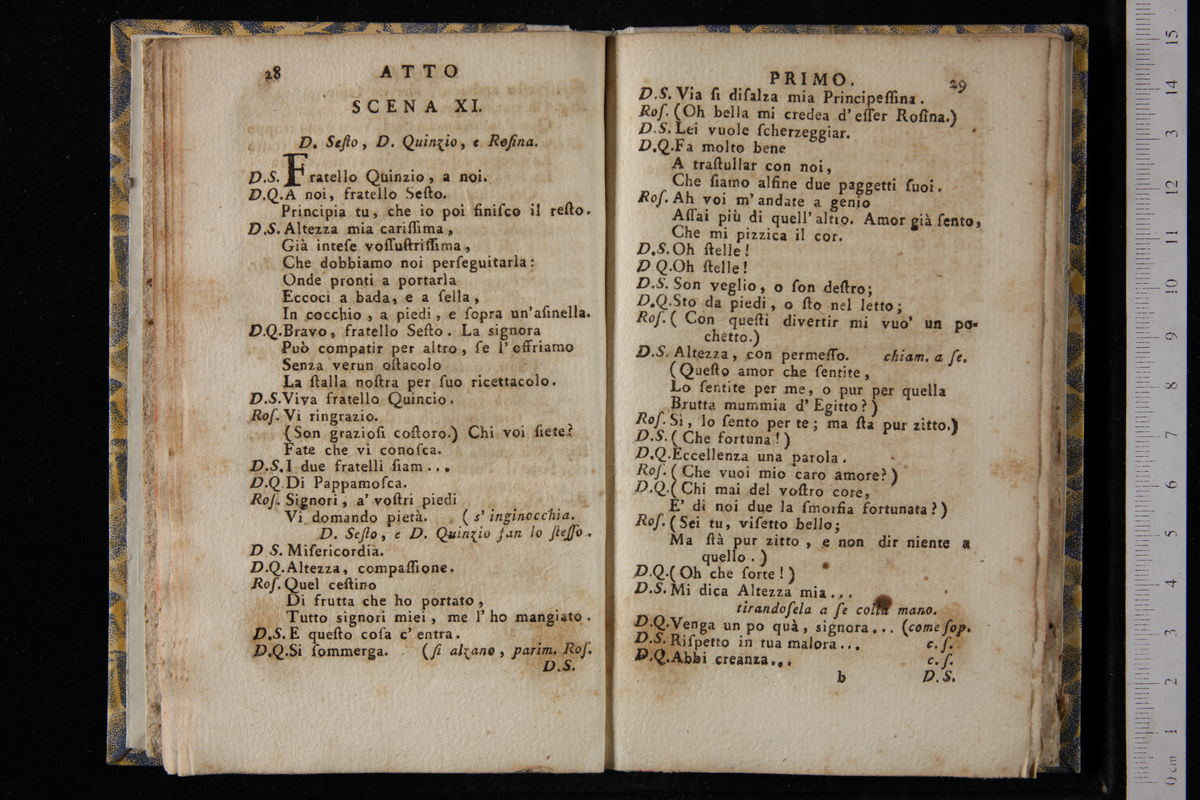 28 ATTO
SCENA XI.
D. Seſto, D. Quinzio, e Roſina.
D.S. Fratello Quinzio, a noi.
D.Q. A noi, fratello Seſto.
Principia tu, che io poi finiſco il reſto.
D.S. Altezza mia cariſſima,
Già inteſe voſſuſtriſſima,
Che dobbiamo noi perſeguitarla:
Onde pronti a portarla
Eccoci a bada, e a ſella,
In cocchio, a piedi, e ſopra un'aſinella.
D.Q. Bravo, fratello Seſto. La signora
Può compatir per altro, ſe l'offriamo
Senza verun oſtacolo
La ſtalla noſtra per ſuo ricettacolo.
D.S. Viva fratello Quincio.
Roſ. Vi ringrazio.
(Son grazioſi coſtoro.) Chi voi ſiete?
Fate che vi conoſca.
D.S. I due fratelli ſiam...
D.Q. Di Pappamoſca.
Roſ. Signori, a' voſtri piedi
Vi domando pietà. (s'inginocchia.
D. Seſto, e D. Quinzio fan lo ſteſſo.
D S. Miſericordia.
D.Q. Altezza, compaſſione.
Roſ. Quel ceſtino
Di frutta che ho portato,
Tutto signori miei, me l'ho mangiato.
D.S. E queſto coſa c'entra.
D.Q. Si ſommerga. (ſi alzano, parim. Roſ.
D.S.
PRIMO. 29
D.S. Via ſi diſalza mia Principeſſina.
Roſ. (Oh bella mi credea d'eſſer Roſina.)
D.S. Lei vuole ſcherzeggiar.
D.Q. Fa molto bene
A traſtullar con noi,
Che ſiamo alfine due paggetti ſuoi.
Roſ. Ah voi m'andate a genio
Aſſai più di quell'altro. Amor già ſento,
Che mi pizzica il cor.
D.S. Oh ſtelle!
D Q. Oh ſtelle!
D.S. Son veglio, o ſon deſtro;
D.Q. Sto da piedi, o ſto nel letto;
Roſ. (Con queſti divertir mi vuo' un po-
chetto.)
D.S. Altezza, con permeſſo. chiam. a ſe.
(Queſto amor che ſentite,
Lo ſentite per me, o pur per quella
Brutta mummia d'Egitto?)
Roſ. Sì, lo ſento per te; ma ſta pur zitto.)
D.S. (Che fortuna!)
D.Q. Eccellenza una parola.
Roſ. (Che vuoi mio caro amore?)
D.Q. (Chi mai del voſtro core,
E' di noi due la ſmorfia fortunata?)
Roſ. (Sei tu, viſetto bello;
Ma ſtà pur zitto, e non dir niente a
quello.)
D.Q. (Oh che ſorte!)
D.S. Mi dica Altezza mia...
tirandoſela a ſe colla mano.
D.Q. Venga un po quà, signora... (come ſop.
D.S. Riſpetto in tua malora... c.ſ.
D.Q. Abbi creanza... c.ſ.
b D.S.